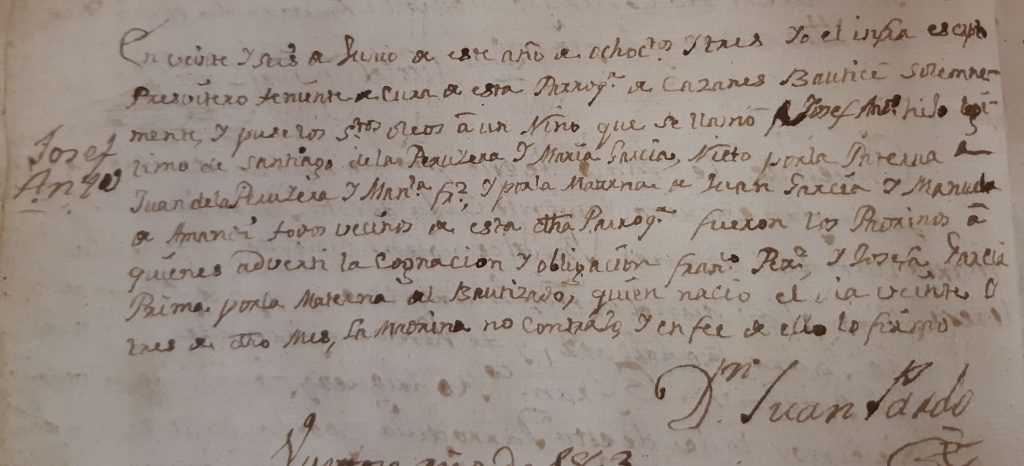 En veinte y seis de Junio de este año de ochoc.tos y tres yo el infra escripto
Presvitero teniente de cura de esta Parroq.a de Cazanes Bauticé solemne-
mente, y puse los s.tos oleos â un Niño, que se llamó Josef Ant.o hijo legi-
timo de Santiago de la Peruyera y Maria Garcia, Nieto por la Paterna de
Josef
An.to
Juan de la Peruyera y Man.la Fr.z y por la Materna de Juan Garcia y Manuela
de Amandi todos vecinos de esta dha Parroq.a fueron los Padrinos â
quienes adverti la Cognacion y obligacion Fran.co Per.z y Josefa Garcia
Prima por la Materna al Bautizado, quien nacio el dia veinte y
tres de dho Mes, la Madrina no contrajo, y en fee de ello lo firmo
D.n Juan Pardo
año de 1803